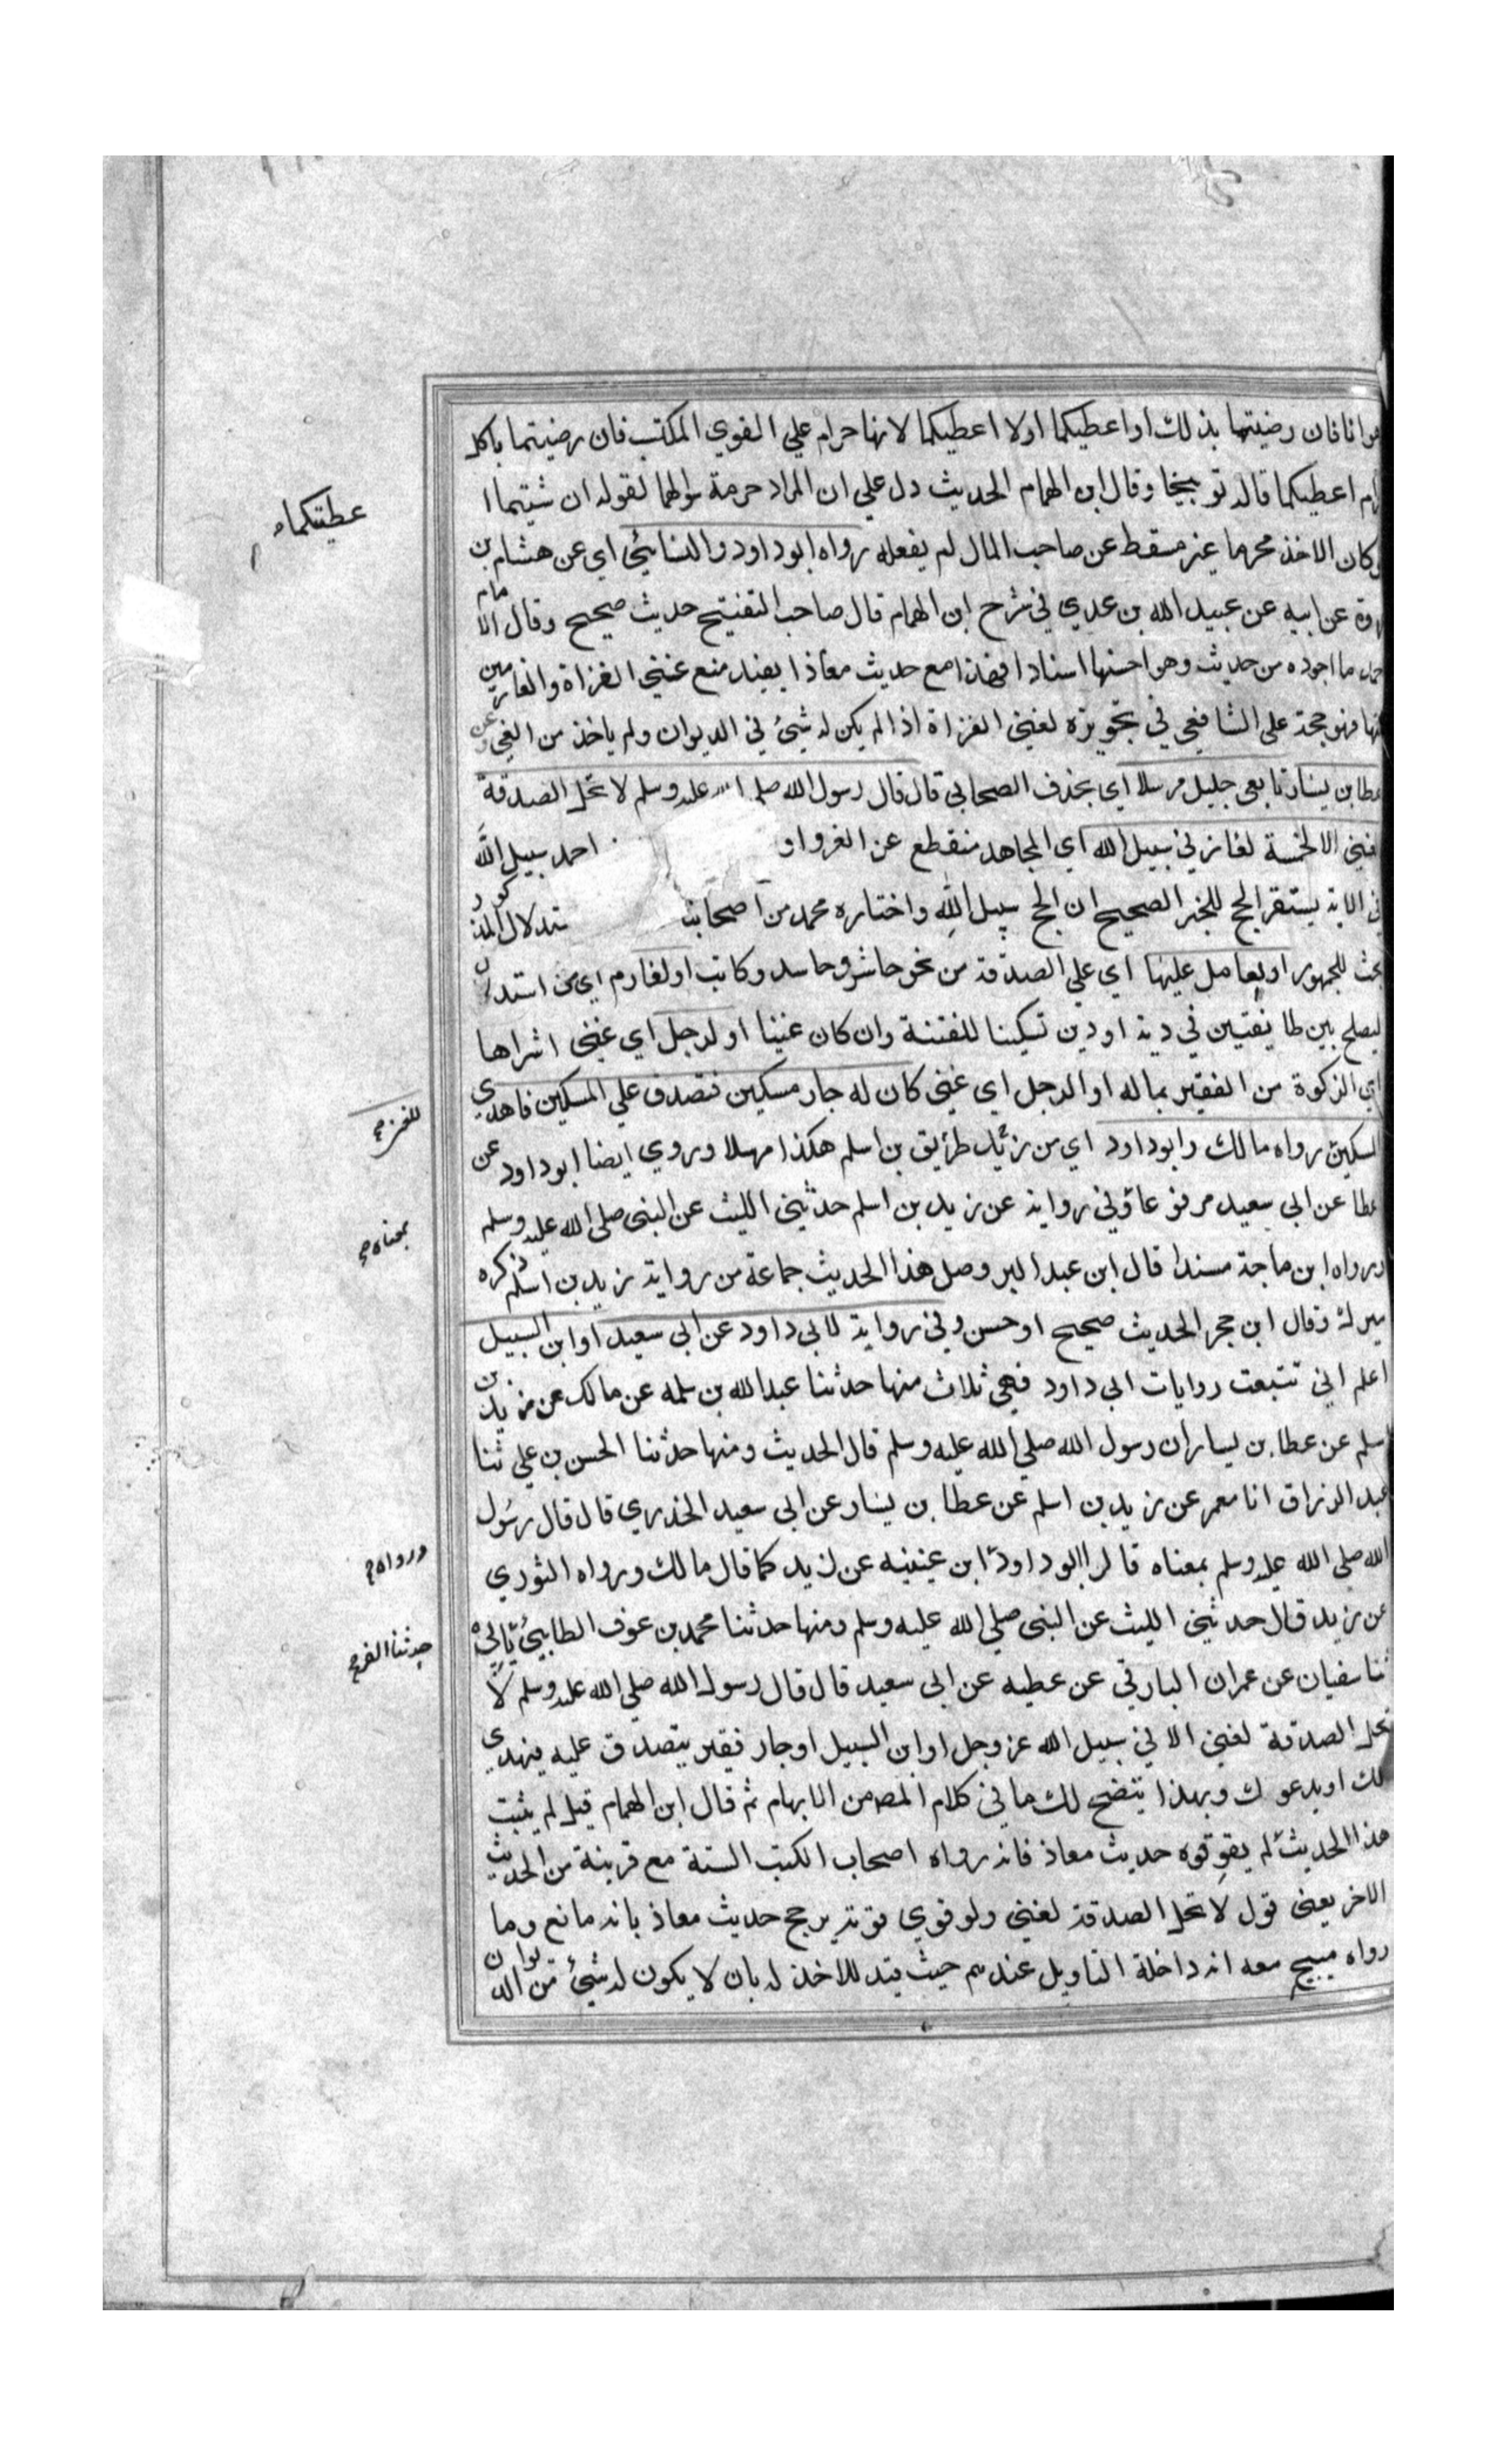 هوانا فان رضيتما بذلك اواعطيكما اولا اعطيكما لانها حرام علي القوي المكتسب فان رضيتما باكل
اعطيكما قاله توبيخا وقال ابن الهمام الحديث دل علي ان المراد حرمة سوالهما لقوله ان شيتما ا
عطيتكما
وكان الاخذ محرما غير مسقط عن صاحب المال لم يفعله رواه ابوداود والنسايئ اي عن هشام بن
روة عن ابيه عن عبيد الله بن عدي في شرح ابن الهمام قال صاحب التفنيح حديث صحيح وقال الامام
ما اجوده من حديث وهو احسنها اسنادا فهذا مع حديث معاذ ايفيد منع غني الغزاة والغارمين
فهو حجة على الشافعي في تجويزه لغني الغزاة اذا لم يكن له شيئ في الديوان ولم ياخذ من الفي وعن
عطا بن يسار تابعي جليل مرسلا اي بحذف الصحابي قال قال رسول الله صلى عليه وسلم لا تحل الصدقة
لغني الا لخمسة لغاز في سبيل الله اي المجاهد منقطع عن الغزو او احمد سبيل الله
في الاية يستقر الحج للخبر الصحيح ان الحج سبيل الله واختاره محمد من اصحابنا تدلال المذكور
بحث للجمهور اولعامل عليها اي علي الصدقة من نحو حاشر وحاسد وكاتب اولغارم اي من استدان
ليصلح بين طايفتين في دية اودين تسكينا للفتنة وان كان غنيا اولرجل اي غني اشراها
اي الزكوة من الفقير بماله او الرجل اي غني كان له جار مسكين فتصدق علي المسكين فاهدي
للغني
المسكين رواه مالك وابوداود اي من طريق بن اسلم هكذا مهلا وروي ايضا ابوداود عن
عطا عن ابي سعيد مرفوعا وفي رواية عن زيد بن اسلم حدثني الليث عن النبي صلى الله عليه وسلم
بمعناه
ورواه ابن ماجة مسندا قال ابن عبد البر وصل هذا الحديث جماعة من رواية زيد بن اسلم ذكره
ميرك وقال ابن حجر الحديث صحيح اوحسن وفي رواية لابي داود عن ابي سعيد اوابن السبيل
اعلم اني تتبعت روايات ابي داود فهي ثلاث منها حدثنا عبد الله بن سلمه عن مالك عن زيد بن
اسلم عن عطا بن يساران رسول الله صلي الله عليه وسلم قال الحديث ومنها حدثنا الحسن بن علي ثنا
عبد الرزاق انا معمر عن زيد بن اسلم عن عطا بن يسار عن ابي سعيد الخدري قال قال رسول
الله صلى الله عليه وسلم بمعناه قال ابوداود ابن عيينه عن زيد كما قال مالك ورواه الثوري
ورواه
عن زيد قال حدثني الليث عن النبى صلي الله عليه وسلم ومنها حدثنا محمد بن عوف الطايئ
حدثنا الفر
ثنا سفيان عن عمران البارقي عن عطيه عن ابي سعيد قال قال رسول الله صلي الله عليه وسلم لا
تحل الصدقة لغني الا في سبيل الله عز وجل اوابن السبيل اوجار فقير يتصدق عليه فيهدي
لك اويدعوك وبهذا يتضح لك ما في كلام المص من الابهام ثم قال ابن الهمام قيل لم يثبت
هذا الحديث لم يقو قوه حديث معاذ فانه رواه اصحاب الكتب الستة مع قرينة من الحديث
الاخر يعني قول لا تحل الصدقة لغني ولو قوي قوته يرجح حديث معاذ بانه مانع وما
رواه مبيح معه انه داخلة التاويل عندهم حيث قيد للاخذ له بان لا يكون له شيئ من الديوان